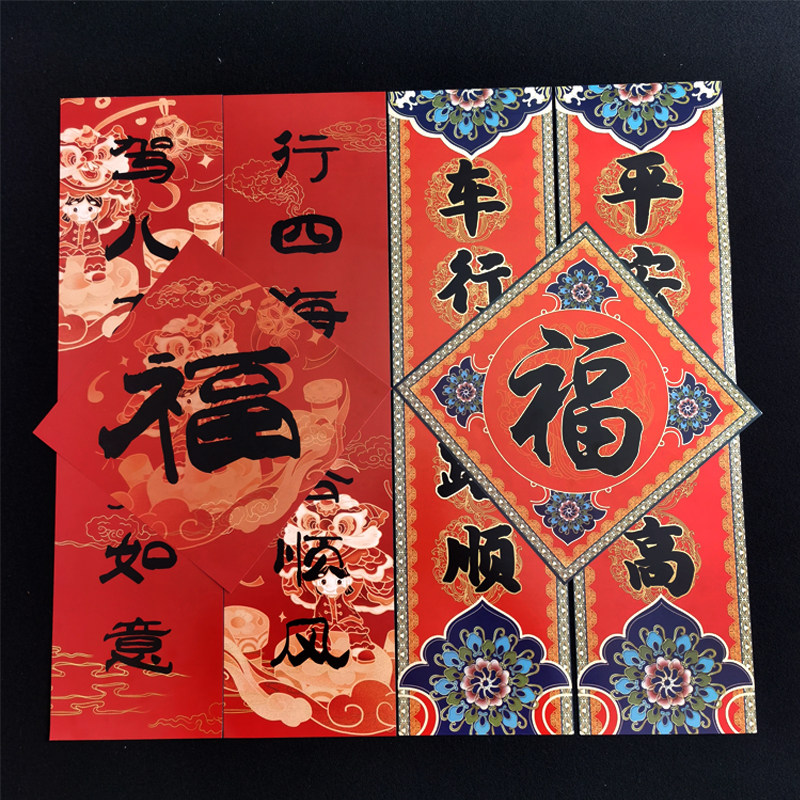 驾八
如意
行四海
顺风
福
车行
路顺
平安
高
福